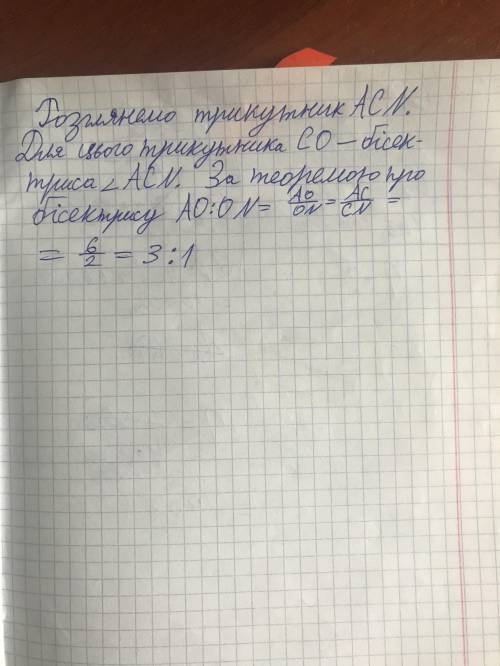 Розглянемо трикутник ACN.
Для цього трикутника CO – бісек-
триса ∠ ACN. За теоремою про
бісектрису AO:ON = AO/ON = AC/CN =
= 6/2 = 3:1